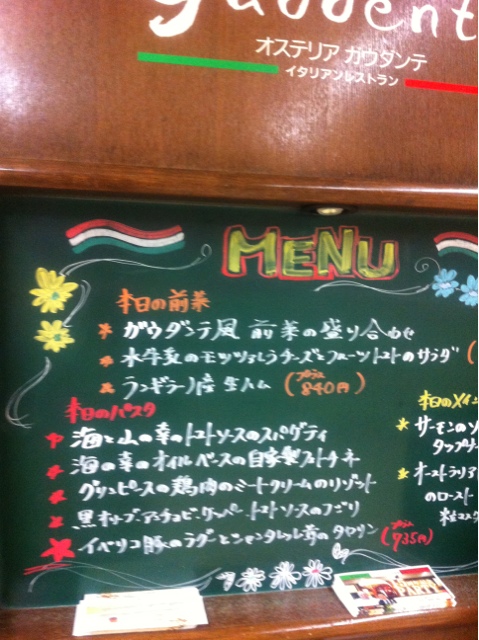 gaudent
オステリア ガウダンテ
イタリアンレストラン
MENU
本日の前菜
ガウダンテ風 前菜の盛り合わせ
水牛製のモッツァレラチーズとフルーツトマトのサラダ (
ランギラーノ産 生ハム (プラス840円)
本日のパスタ
海と山の幸のトマトソースのスパゲティ
海の幸のオイルベースの自家製ストリチネ
グリンピースの鶏肉のミートクリームのリゾット
黒オリーブ、アンチョビ、ケーパー トマトソースのフジリ
イベリコ豚のラグーとシャンタレッレ茸の タヤリン (プラス935円)
本日のメイン
サーモンのソ
タップナー
オーストラリア
のロースト
HAPPY